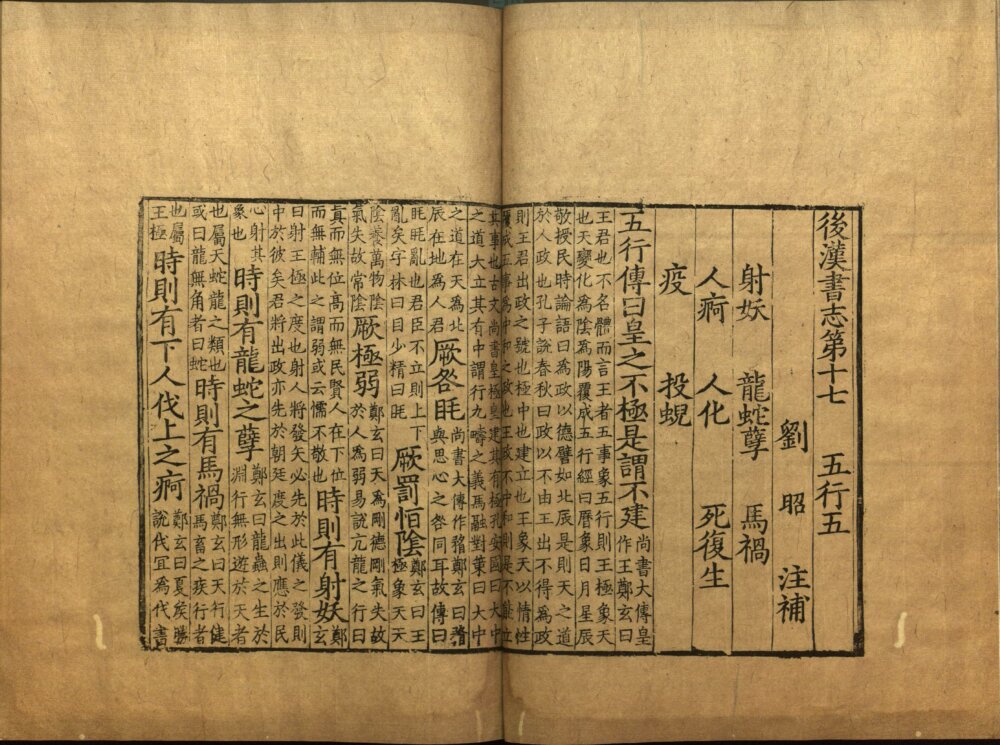 後漢書志第十七 五行五
劉昭 注補
射妖 龍蛇孽 馬禍
人痾 人化 死復生
疫 投蜺
五行傳曰皇之不極是謂不建尚書大傳皇作王鄭玄曰
王君也不名體而言王者五事象五行則王極象天
也天變化為陰為陽覆成五行經曰曆象日月星辰
敬授民時論語曰為政以德譬如北辰是則天之道
於人政也孔子說春秋曰政以不由王出不得為政
則王君出政之號也極中也建立也王象天以情性
覆成五事為中和之政也王政不中和則是不能立
其事也古文尚書皇極皇建其有極孔安國曰大中
之道大立其有中謂行九疇之義馬融對策曰大中
之道在天為北辰在地為人君厥咎眊尚書大傳作瞀鄭玄曰瞀與思心之咎同耳故傳曰
眊眊亂也君臣不立則上下亂矣字林曰目少精曰眊厥罰恒陰鄭玄曰王極象天天
陰養萬物陰氣失故常陰厥極弱鄭玄曰天為剛德剛氣失故於人為弱易說亢龍之行曰
貴而無位高而無民賢人在下位而無輔此之謂弱或云懦不敬也時則有射妖鄭玄
曰射王極之度也射人將發矢必先於此儀之發則
中於彼矣君將出政亦先於朝廷度之出則應於民
心射其象也時則有龍蛇之孽鄭玄曰龍蟲之生於淵行無形遊於天者
也屬天蛇龍之類也或曰龍無角者曰蛇時則有馬禍鄭玄曰天行健馬畜之疾行者
也屬王極時則有下人伐上之痾鄭玄曰夏侯勝說伐冝為代書